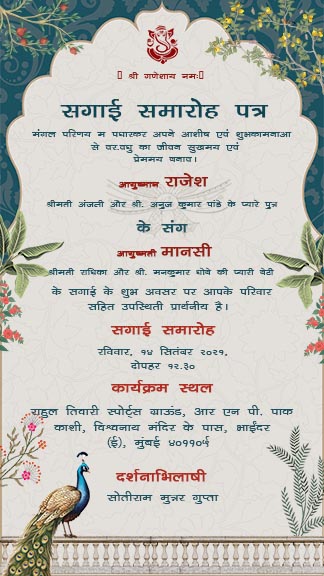 ॥ श्री गणेशाय नमः॥
सगाई समारोह पत्र
मंगल परिणय म पधारकर अपने आशीष एवं शुभकामनाओ
से वर.वधु का जीवन सुखमय एवं
प्रेममय बनाव।
आयुष्मान राजेश
श्रीमती अंजली और श्री. अनुज कुमार पांडे के प्यारे पुत्र
के संग
आयुष्मती मानसी
श्रीमती राधिका और श्री. मनकुमार धोबे की प्यारी बेटी
के सगाई के शुभ अवसर पर आपके परिवार
सहित उपस्थिती प्रार्थनीय है।
सगाई समारोह
रविवार, १४ सितंबर २०२१,
दोपहर १२.३०
कार्यक्रम स्थल
राहुल तिवारी स्पोर्ट्स ग्राऊंड, आर एन पी. पाक
काशी, विश्वनाथ मंदिर के पास, भाईंदर
(ई), मुंबई ४०११०५
दर्शनाभिलाषी
सोतीराम मुन्नर गुप्ता